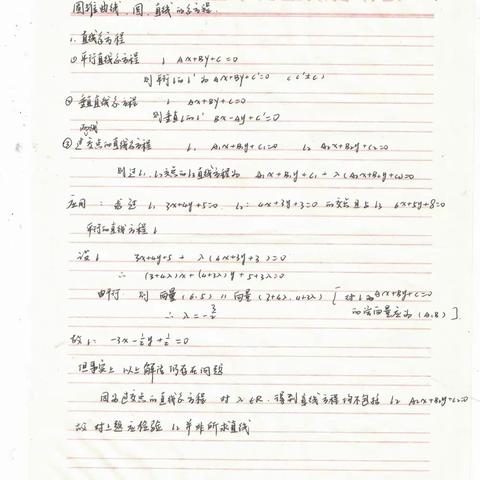 圆锥曲线、圆、直线的系方程
1. 直线系方程
① 平行直线系方程 l: Ax+By+C=0
则平行l的l'为 Ax+By+C'=0 (C'≠C)
② 垂直直线系方程 l: Ax+By+C=0
则垂直l的l' Bx-Ay+C'=0
两线
③ 过交点的直线系方程 l₁ A₁x+B₁y+C₁=0 l₂ A₂x+B₂y+C₂=0
则过l₁、l₂交点的直线方程为 A₁x+B₁y+C₁+λ(A₂x+B₂y+C₂)=0
应用: 求过 l₁ 3x+4y+5=0, l₂: 4x+3y+3=0 的交点且与l₃ 6x+5y+8=0
平行的直线方程l
设l 3x+4y+5+λ(4x+3y+3)=0
∴ (3+4λ)x+(4+3λ)y+5+3λ=0
由平行 则 向量(6,5) // 向量(3+4λ, 4+3λ) [对l为Ax+By+C=0
的法向量应为(A,B)].
∴ λ=-3/2
故l: -3x-½y+½=0
但事实上以上解法仍存在问题
因为过交点的直线系方程 对λ∈R, 得到直线方程均不包括 l₂ A₂x+B₂y+C₂=0
故对上题应检验 l₂ 并非所求直线